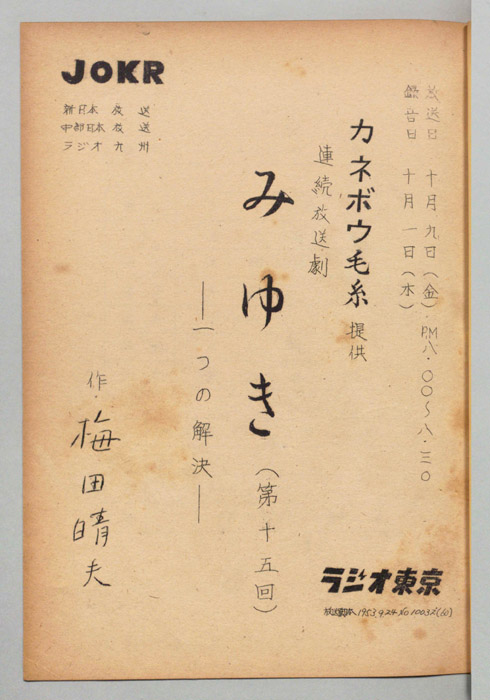 JOKR
新日本放送
中部日本放送
ラジオ九州
放送日 十月九日(金)・PM八・〇〇〜八・三〇
録音日 十月一日(木)
カネボウ毛糸 提供
連続放送劇
みゆき (第十五回)
―一つの解決―
作・梅田晴夫
ラジオ東京
1953.9.24